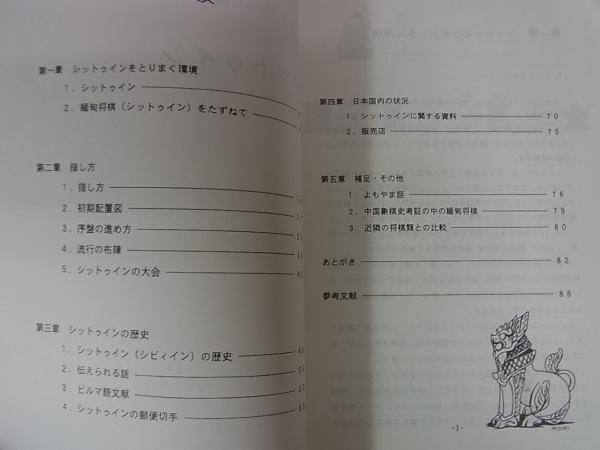 第一章 シットゥインをとりまく環境
1．シットゥイン
2．緬甸将棋（シットゥイン）をたずねて
第二章 指し方
1．指し方
2．初期配置図
3．序盤の進め方
4．流行の布陣
5．シットゥインの大会
第三章 シットゥインの歴史
1．シットゥイン（シビィイン）の歴史
2．伝えられる話
3．ビルマ語文献
4．シットゥインの郵便切手
第四章 日本国内の状況
1．シットゥインに関する資料 70
2．販売店 75
第五章 補足・その他
1．よもやま話 76
2．中国象棋史考証の中の緬甸将棋 79
3．近隣の将棋類との比較 80
あとがき 82
参考文献 86
-1-